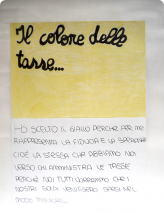 Il colore delle
tasse...
HO SCELTO IL GIALLO PERCHÈ PER ME
RAPPRESENTA LA FIDUCIA E LA SPERANZA
CIOÈ LA STESSA CHE DOBBIAMO NOI
VERSO CHI AMMINISTRA LE TASSE
PERCHÈ NOI TUTTI VORREMMO CHE I
NOSTRI SOLDI VENISSERO SPESI NEL
MODO MIGLIORE...